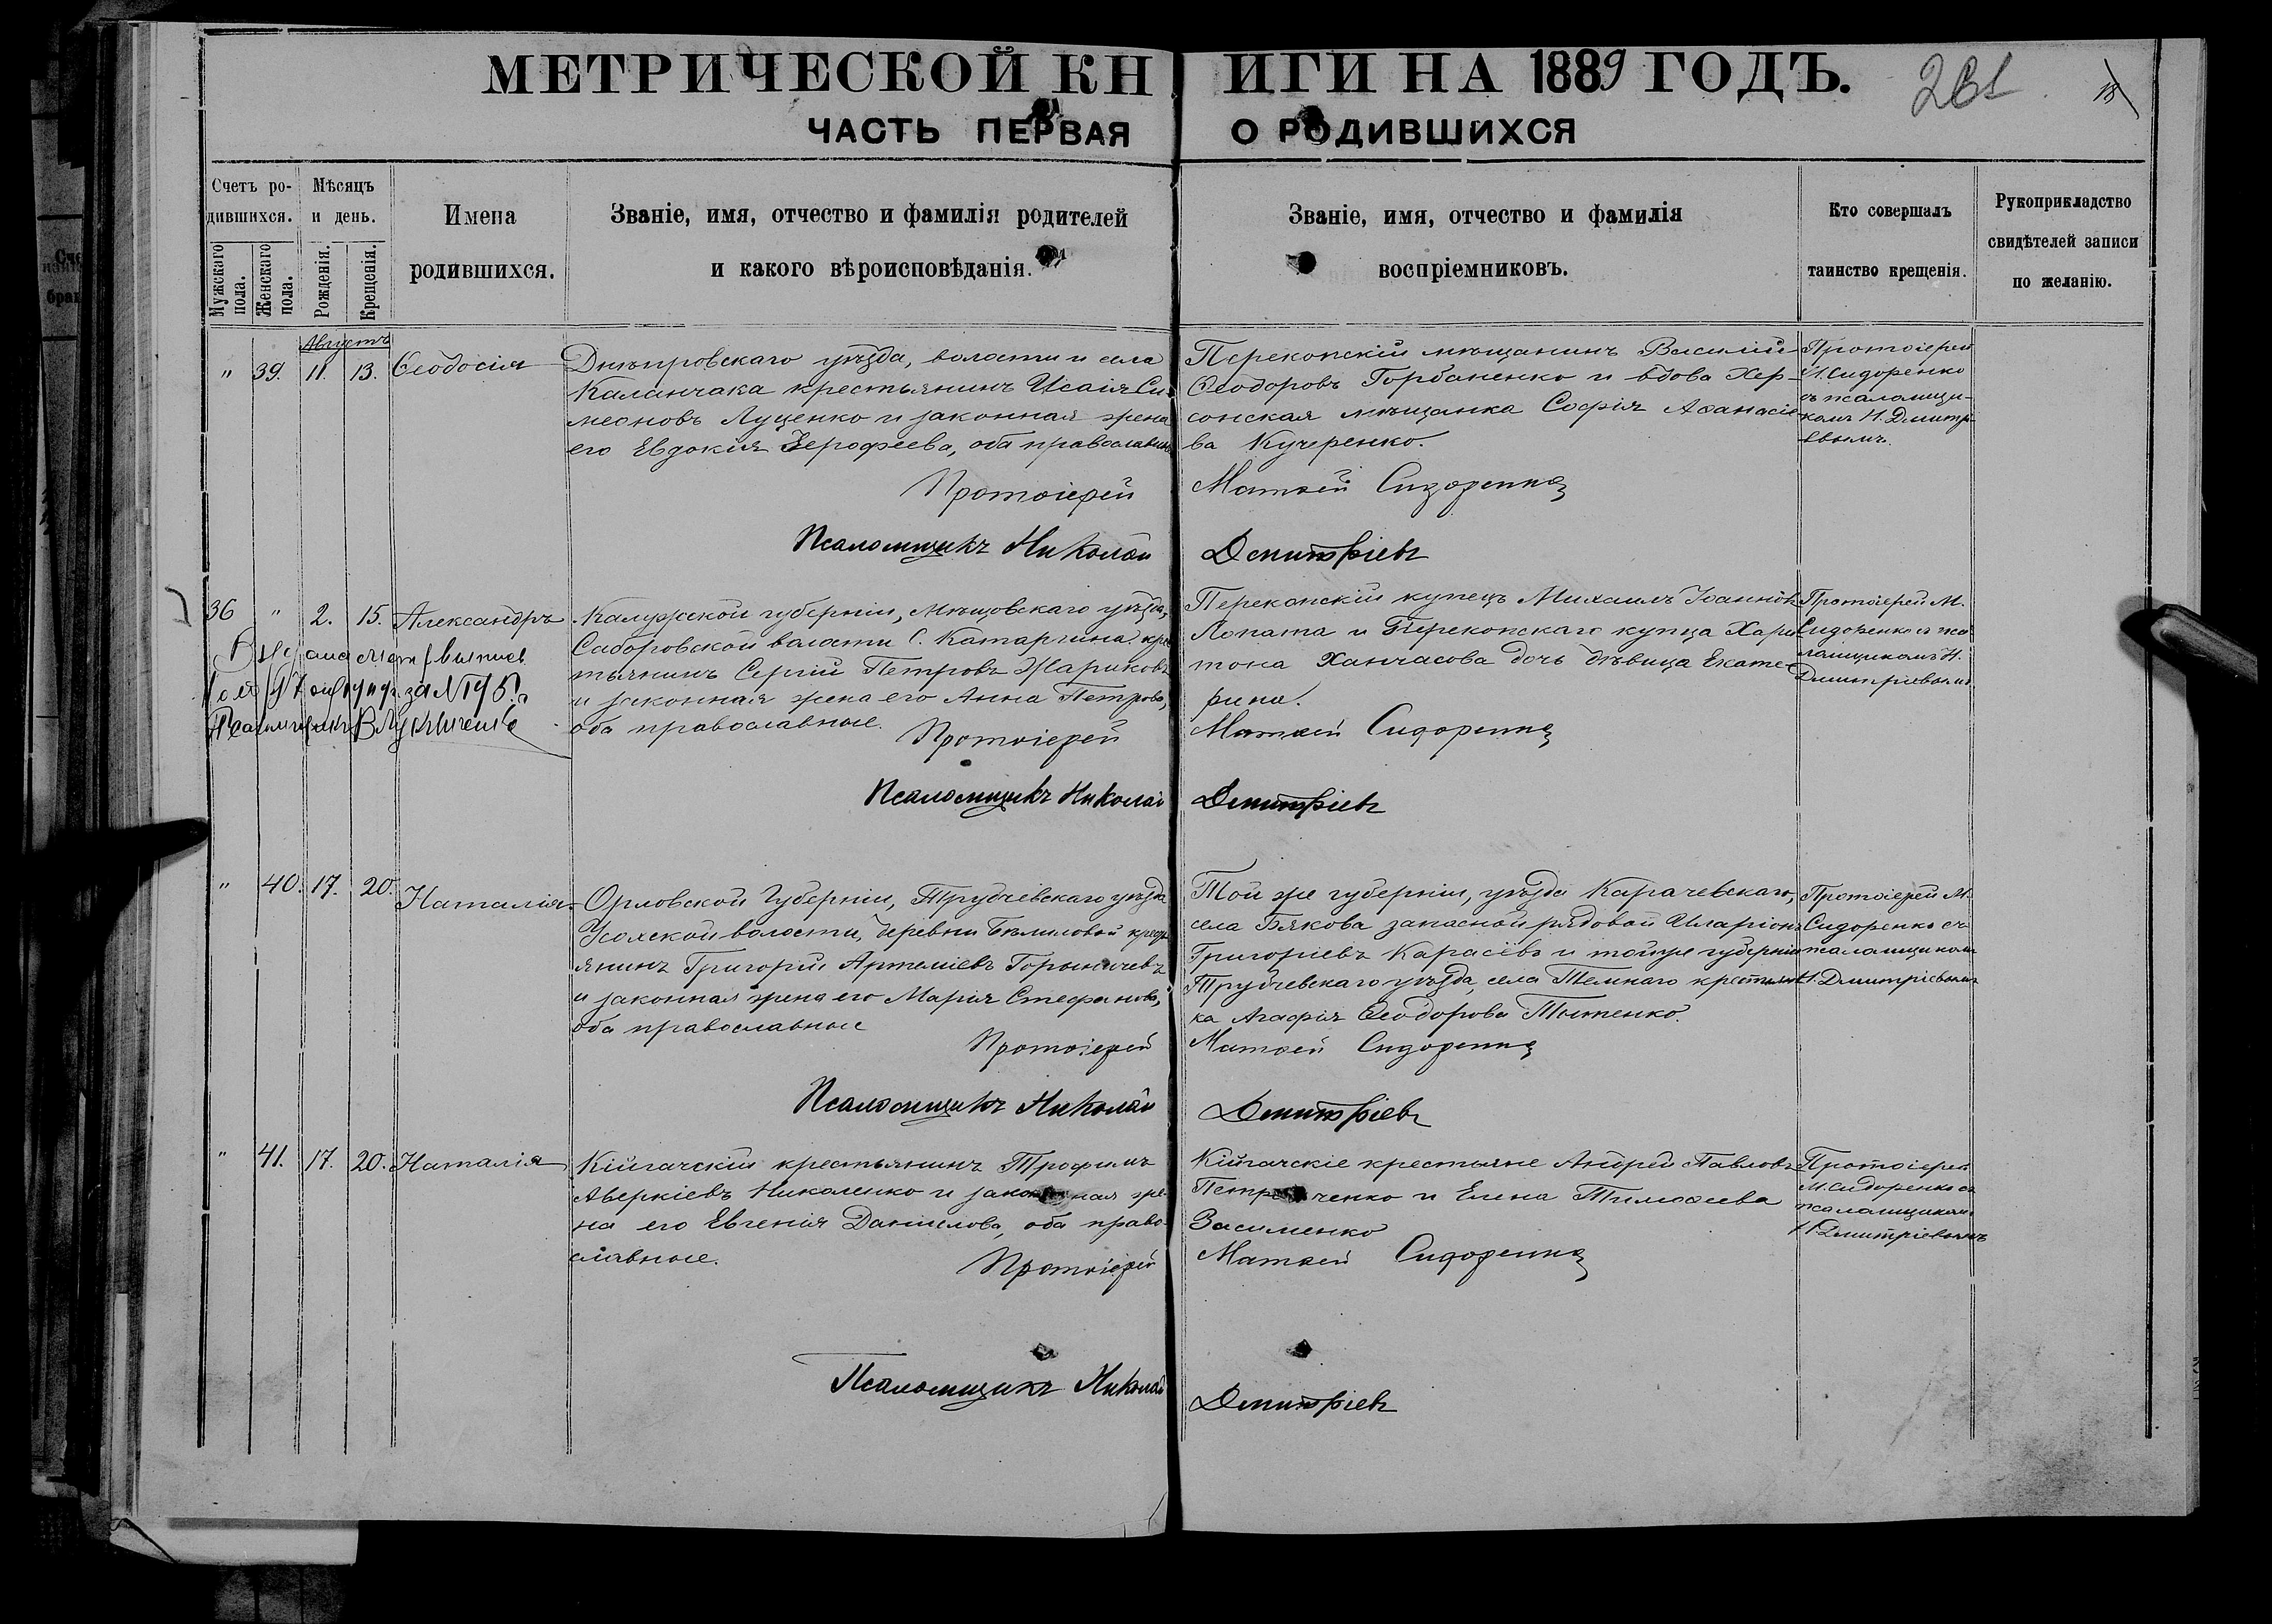 МЕТРИЧЕСКОЙ КНИГИ НА 1889 ГОДЪ.
261
18
ЧАСТЬ ПЕРВАЯ О РОДИВШИХСЯ
Счетъ родившихся.
Мужскаго пола.
Женскаго пола.
Мѣсяцъ и день.
Рожденія.
Крещенія.
Имена
родившихся.
Званіе, имя, отчество и фамилія родителей
и какого вѣроисповѣданія.
Званіе, имя, отчество и фамилія
воспріемниковъ.
Кто совершалъ
таинство крещенія.
Рукоприкладство
свидѣтелей записи
по желанію.
Августъ
" 39. 11. 13. Ѳеодосія
Днѣпровскаго уѣзда, волости и села
Каланчака крестьянинъ Исаія Си-
меоновъ Луценко и законная жена
его Евдокія Ерофеева, оба православные
Перекопскій мѣщанинъ Василій
Ѳеодоровъ Горбаненко и вдова Хер-
сонская мѣщанка Софія Аѳанасіе-
ва Кучеренко.
Протоіерей
М. Сидоренко
съ псаломщи-
комъ Н. Дмитрі-
евымъ.
Протоіерей Матѳей Сидоренко
Псаломщикъ Николай Дмитріевъ
36 " 2. 15. Александръ
Выдана метр. выпись
за № 195
Псаломщикъ
Калужской губерніи, Мѣщовскаго уѣзда,
волости С. Катаргина кре-
тьянинъ Сергій Петровъ Жариковъ
и законная жена его Анна Петрова,
оба православные.
Перекопскій купецъ Михаилъ Іоанновъ
Лопата и Перекопскаго купца Хари-
тона Ханчасова дочь дѣвица Екате-
рина.
Протоіерей М.
Сидоренко съ пса-
ломщикомъ Н.
Дмитріевымъ
Протоіерей Матѳей Сидоренко
Псаломщикъ Николай Дмитріевъ
" 40. 17. 20. Наталія
Орловской Губерніи, Трубчевскаго уѣзда
Усохской волости, деревни кресть-
янинъ Григорій Артеміевъ
и законная жена его Марія Стефанова,
оба православные
Той же губерніи, уѣзда Карачевскаго,
села Бякова запасной рядовой Иларіонъ
Григоріевъ Карасёвъ и тойже губерніи
Трубчевскаго уѣзда, села Темнаго крестьян-
ка Агафія Ѳеодорова Тытенко.
Протоіерей М.
Сидоренко съ
псаломщикомъ
Н. Дмитріевымъ
Протоіерей Матѳей Сидоренко
Псаломщикъ Николай Дмитріевъ
" 41. 17. 20. Наталія
крестьянинъ Трофимъ
Аверкіевъ Николенко и законная же-
на его Евгенія Даніилова, оба право-
славные.
крестьяне Андрей Павловъ
и Елена Тимоѳеева
Засименко
Протоіерей
М. Сидоренко съ
псаломщикомъ
Н. Дмитріевымъ
Протоіерей Матѳей Сидоренко
Псаломщикъ Николай Дмитріевъ